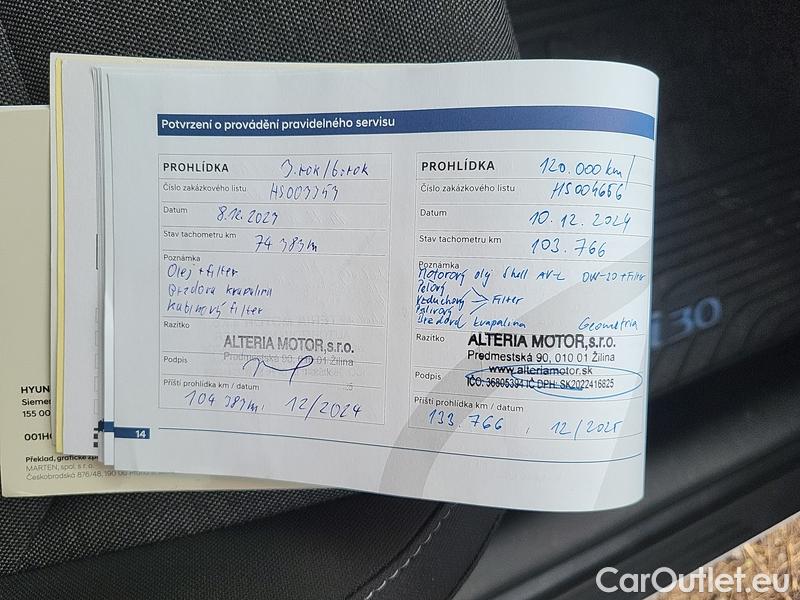 Potvrzení o provádění pravidelného servisu
PROHLÍDKA 3.rok/6.rok
Číslo zakázkového listu
HS003353
Datum 8.12.2023
Stav tachometru km
74 383 m
Poznámka
Olej + filter
Brzdova kvapalina
Kabinový filter
Razítko
ALTERIA MOTOR,s.r.o.
Predmestská 90, 010 01 Žilina
Podpis
Příští prohlídka km / datum
104 383 m. 12/2024
14
PROHLÍDKA 120.000 km/
Číslo zakázkového listu HS004656
Datum 10.12.2024
Stav tachometru km
103.766
Poznámka
Motorový olej Shell AV-L 0W-20 + Filter
Peľový
Vzduchový > Filter
Palivový
Brzdová kvapalina Geometria
Razítko
ALTERIA MOTOR,s.r.o.
Predmestská 90, 010 01 Žilina
www.alteriamotor.sk
Podpis IČO: 36805394 IČ DPH: SK2022416825
Příští prohlídka km / datum
133.766, 12/2025
HYUN
Siemen
155 00
001HO
Překlad, grafické zp
MARTEN, spol. s r.o.
Českobrodská 876/48, 190 00
i30
CarOutlet.eu